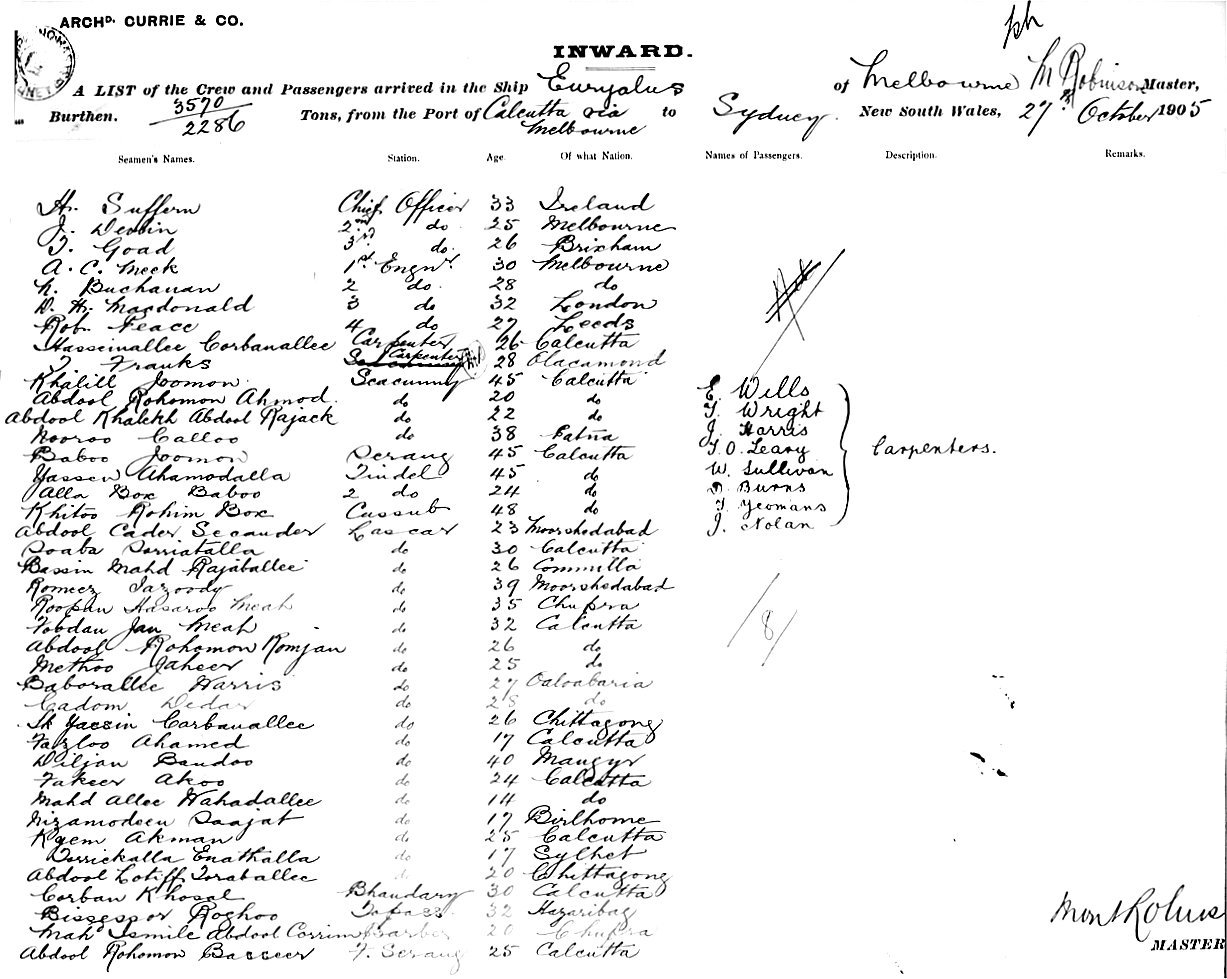 ARCHD. CURRIE & CO.
INWARD.
A LIST of the Crew and Passengers arrived in the Ship Euryalus of Melbourne M Robinson Master,
Burthen. 3570 Tons, from the Port of Calcutta via to Sydney. New South Wales, 27th October 1905
2286 Melbourne
Seamen's Names. Station. Age. Of what Nation. Names of Passengers. Description. Remarks.
H. Suffern Chief Officer 33 Ireland
J. Devlin 2nd do. 25 Melbourne
T. Goad 3rd do. 26 Brixham
A. C. Meek 1st Engnr. 30 Melbourne
N. Buchanan 2 do. 28 do
D. H. Macdonald 3 do 32 London
Rob. Peace 4 do 27 Leeds
Hasseinallee Corbanallee Carpenter 26 Calcutta
Franks Carpenter 28 Olacamond
Khalill Joomon Seacunny 45 Calcutta E. Wills
Abdool Rohomon Ahmod. do 20 do T. Wright
Abdool Khalekh Abdool Rajack do 22 do J. Harris
Nooroo Calloo do 38 Patna T. O. Leary Carpenters.
Baboo Joomon Serang 45 Calcutta W. Sullivan
Yasseen Ahamodalla Tindel 45 do D. Burns
Alla Box Baboo 2 do 24 do T. Yeomans
Khitoo Rohim Box Cussub 48 do J. Nolan
Abdool Cader Secander Lascar 23 Moorshedabad
Soaba Sorriatalla do 30 Calcutta
Bassin Mahd Rajaballee do 26 Commilla
Romeez Tazoody do 39 Moorshedabad
Roopan Hasaroo Meah do 35 Chupra
Fobdan Jan Meah do 32 Calcutta 8
Abdool Rohomon Romjan do 26 do
Methoo Jaheer do 25 do
Baborallee Warris do 27 Oaloabaria
Cadom Dedar do 28 do
Sk Yaesin Corbanallee do 26 Chittagong
Fazloo Ahamed do 17 Calcutta
Diljan Bandoo do 40 Mangyr
Fakeer Akoo do 24 Calcutta
Mahd Allee Wahadallee do 14 do
Nizamodeen Saajat do 17 Birlhome
Kyem Akman do 25 Calcutta
Dorrickalla Enathalla do 17 Sylhet
Abdool Lotiff Toraballee do 20 Chittagong
Corban Khosal Bhandary 30 Calcutta
Bissessor Roghoo Topass. 32 Hazaribag
Mahd Ismile Abdool Corrim Barber 20 Chupra
Abdool Rohomon Basseer F. Serang 25 Calcutta
MASTER